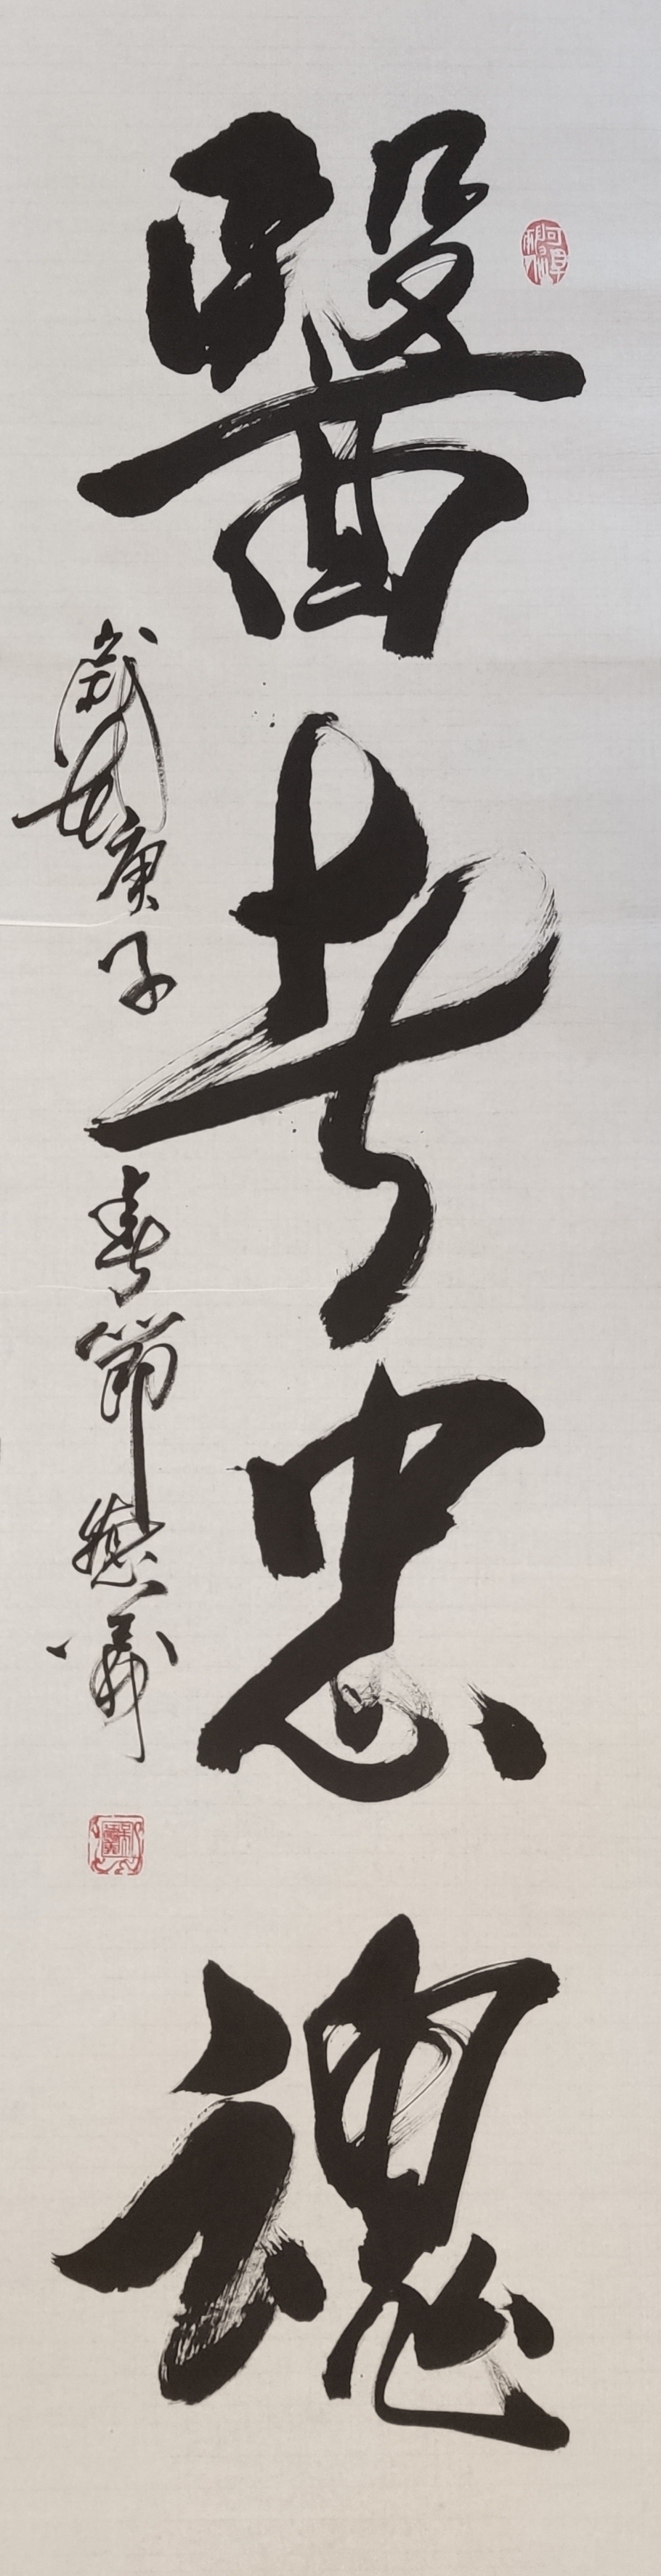 醫者忠魂
歲在庚子春節德義